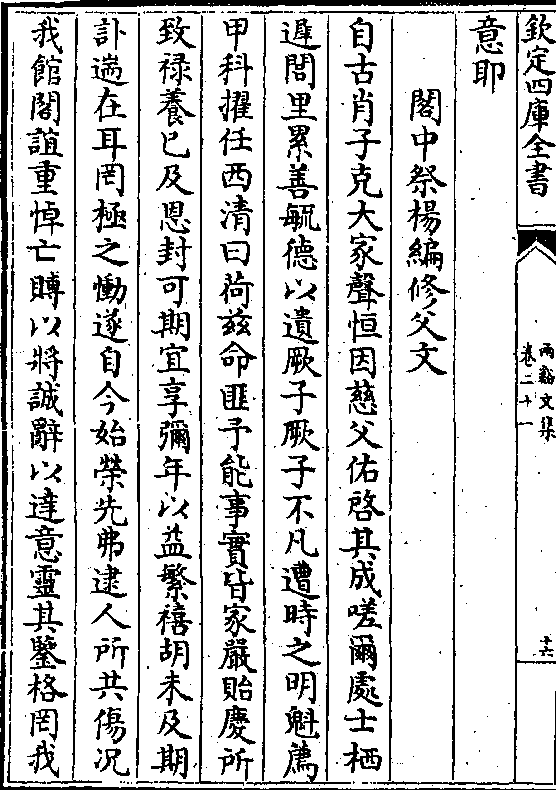 欽定四庫全書
兩谿文集
卷二十一
十六
意耶
閣中祭楊編修父文
自古肖子克大家聲恒因慈父佑啓其成嗟爾處士栖
遲閭里累善毓德以遺厥子厥子不凡遭時之明魁薦
甲科擢任西清曰荷兹命匪予能事實皆家嚴貽慶所
致禄養已及恩封可期宜享彌年以益繁禧胡未及期
訃遄在耳罔極之慟遂自今始榮先弗逮人所共傷况
我館閣誼重悼亡賻以將誠辭以達意靈其鑒格罔我